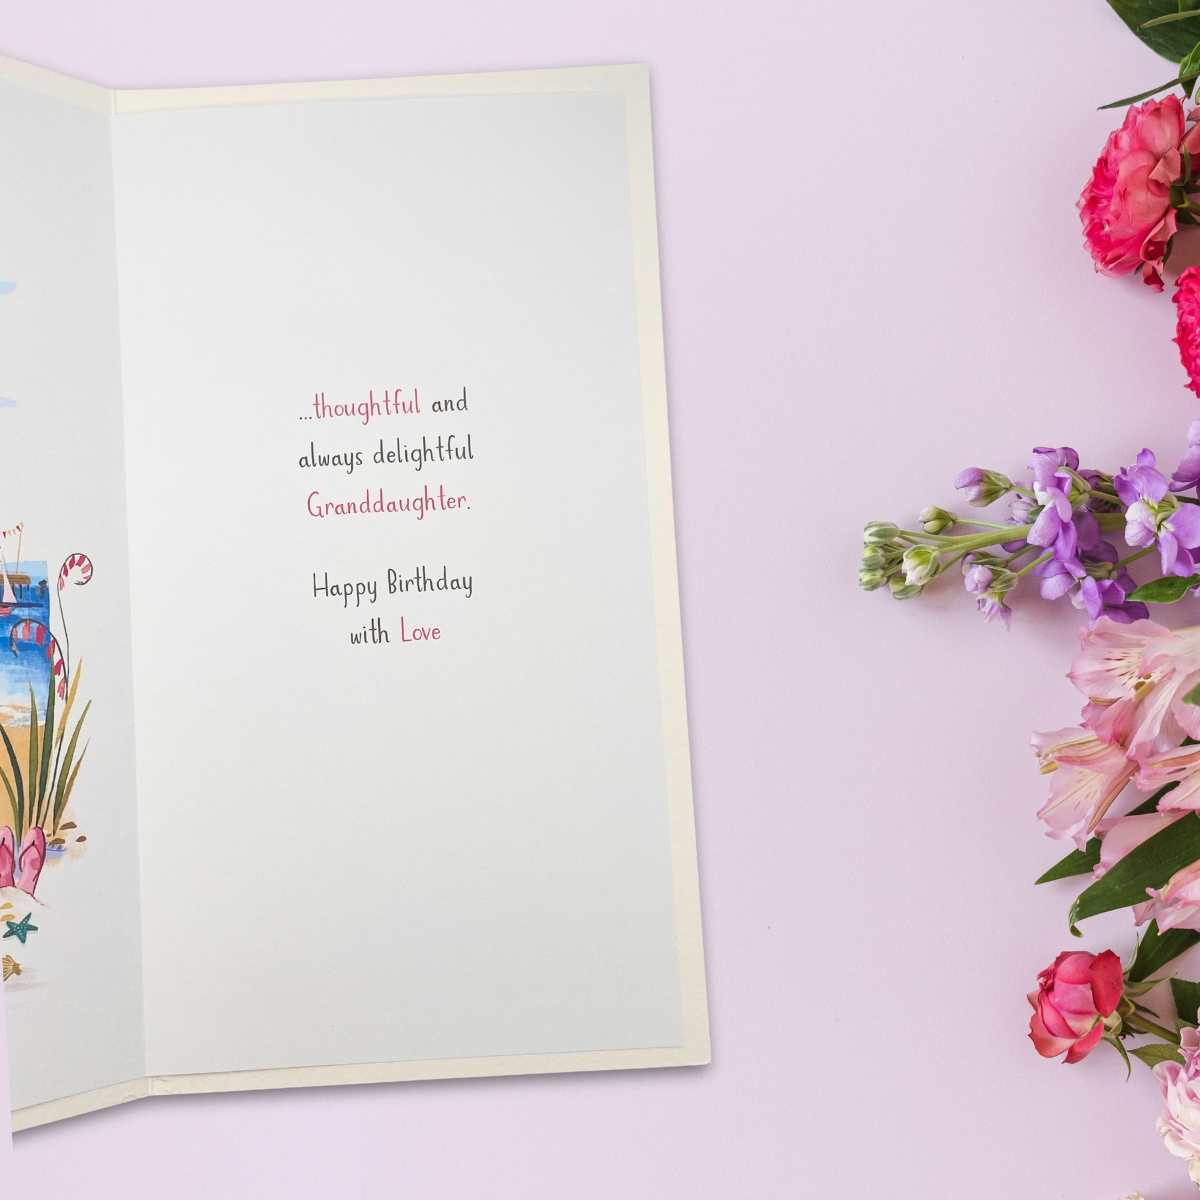 ...thoughtful and
always delightful
Granddaughter.
Happy Birthday
with Love